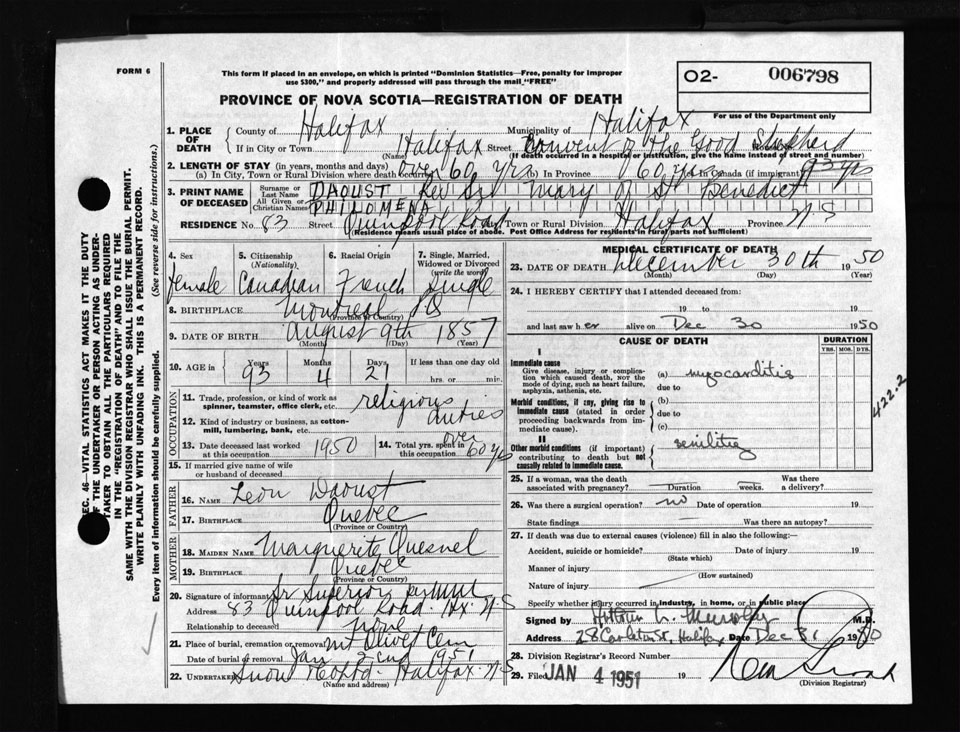 FORM 6
This form if placed in an envelope, on which is printed "Dominion Statistics—Free, penalty for improper
use $300," and properly addressed will pass through the mail "FREE"
O2- 006798
For use of the Department only
PROVINCE OF NOVA SCOTIA—REGISTRATION OF DEATH
1. PLACE OF DEATH { County of Halifax Municipality of Halifax
If in City or Town Halifax Street Convent of the Good Shepherd
(Name) (If death occurred in a hospital or institution, give the name instead of street and number)
2. LENGTH OF STAY (in years, months and days)
(a) In City, Town or Rural Division where death occurred over 60 yrs (b) In Province 60 yrs (c) In Canada (if immigrant) 93 yrs
3. PRINT NAME OF DECEASED { Surname or Last Name DAOUST Rev Sr Mary of St Benedict
All Given or Christian Names PHILOMENA
RESIDENCE No. 83 Street Quinpool Road City, Town or Rural Division Halifax Province N-S
(Residence means usual place of abode. Post Office Address for residents in rural parts not sufficient)
4. Sex 5. Citizenship (Nationality) 6. Racial Origin 7. Single, Married, Widowed or Divorced (write the word)
female Canadian French single
8. BIRTHPLACE Montreal PQ
(Province or Country)
9. DATE OF BIRTH August 9th 1857
(Month) (Day) (Year)
10. AGE in { Years Months Days If less than one day old
93 4 21 hrs. or min.
OCCUPATION
11. Trade, profession, or kind of work as spinner, teamster, office clerk, etc. religious
12. Kind of industry or business, as cotton-mill, lumbering, bank, etc. duties
13. Date deceased last worked at this occupation 1950 14. Total yrs. spent in this occupation over 60 yrs
15. If married give name of wife or husband of deceased
FATHER
16. Name Leon Daoust
17. Birthplace Quebec
(Province or Country)
MOTHER
18. Maiden Name Marguerite Quesnel
19. Birthplace Quebec
(Province or Country)
20. Signature of informant Sr Superior per
Address 83 Quinpool Road. Hx. N-S
Relationship to deceased none
21. Place of burial, cremation or removal Mt Olivet Cem
Date of burial or removal Jan 2nd 1951
22. Undertaker Snow & Co Ltd. Halifax N-S
(Name and address)
MEDICAL CERTIFICATE OF DEATH
23. DATE OF DEATH December 30th 1950
(Month) (Day) (Year)
24. I HEREBY CERTIFY that I attended deceased from:
19 to 19
and last saw her alive on Dec 30 1950
CAUSE OF DEATH DURATION
YRS. MOS. DYS.
I
Immediate cause
Give disease, injury or complication which caused death, not the mode of dying, such as heart failure, asphyxia, asthenia, etc.
(a) myocarditis
due to
Morbid conditions, if any, giving rise to immediate cause (stated in order proceeding backwards from immediate cause).
(b)
due to
(c)
422.2
II
Other morbid conditions (if important) contributing to death but not causally related to immediate cause.
senility
25. If a woman, was the death associated with pregnancy? Duration weeks. Was there a delivery?
26. Was there a surgical operation? no Date of operation 19
State findings Was there an autopsy?
27. If death was due to external causes (violence) fill in also the following:—
Accident, suicide or homicide? Date of injury 19
(State which)
Manner of injury
(How sustained)
Nature of injury
Specify whether injury occurred in industry, in home, or in public place
Signed by Murphy M.D.
Address 28 Carleton St, Halifax Date Dec 31 1950
28. Division Registrar's Record Number
29. Filed JAN 4 1951 19
(Division Registrar)
SEC. 46—VITAL STATISTICS ACT MAKES IT THE DUTY
OF THE UNDERTAKER OR PERSON ACTING AS UNDER-
TAKER TO OBTAIN ALL THE PARTICULARS REQUIRED
IN THE "REGISTRATION OF DEATH" AND TO FILE THE
SAME WITH THE DIVISION REGISTRAR WHO SHALL ISSUE THE BURIAL PERMIT.
WRITE PLAINLY WITH UNFADING INK. THIS IS A PERMANENT RECORD.
Every item of information should be carefully supplied. (See reverse side for instructions.)